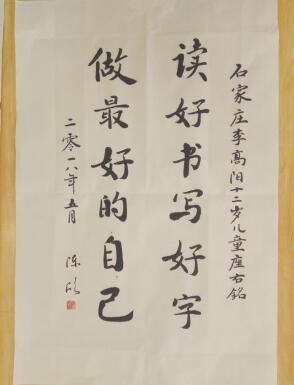 石家庄李高阳十二岁儿童座右铭
读好书写好字
做最好的自己
二零一八年五月
陈欣